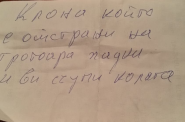 Клона който
е отстрани на
тротоара падна
и ви счупи колата